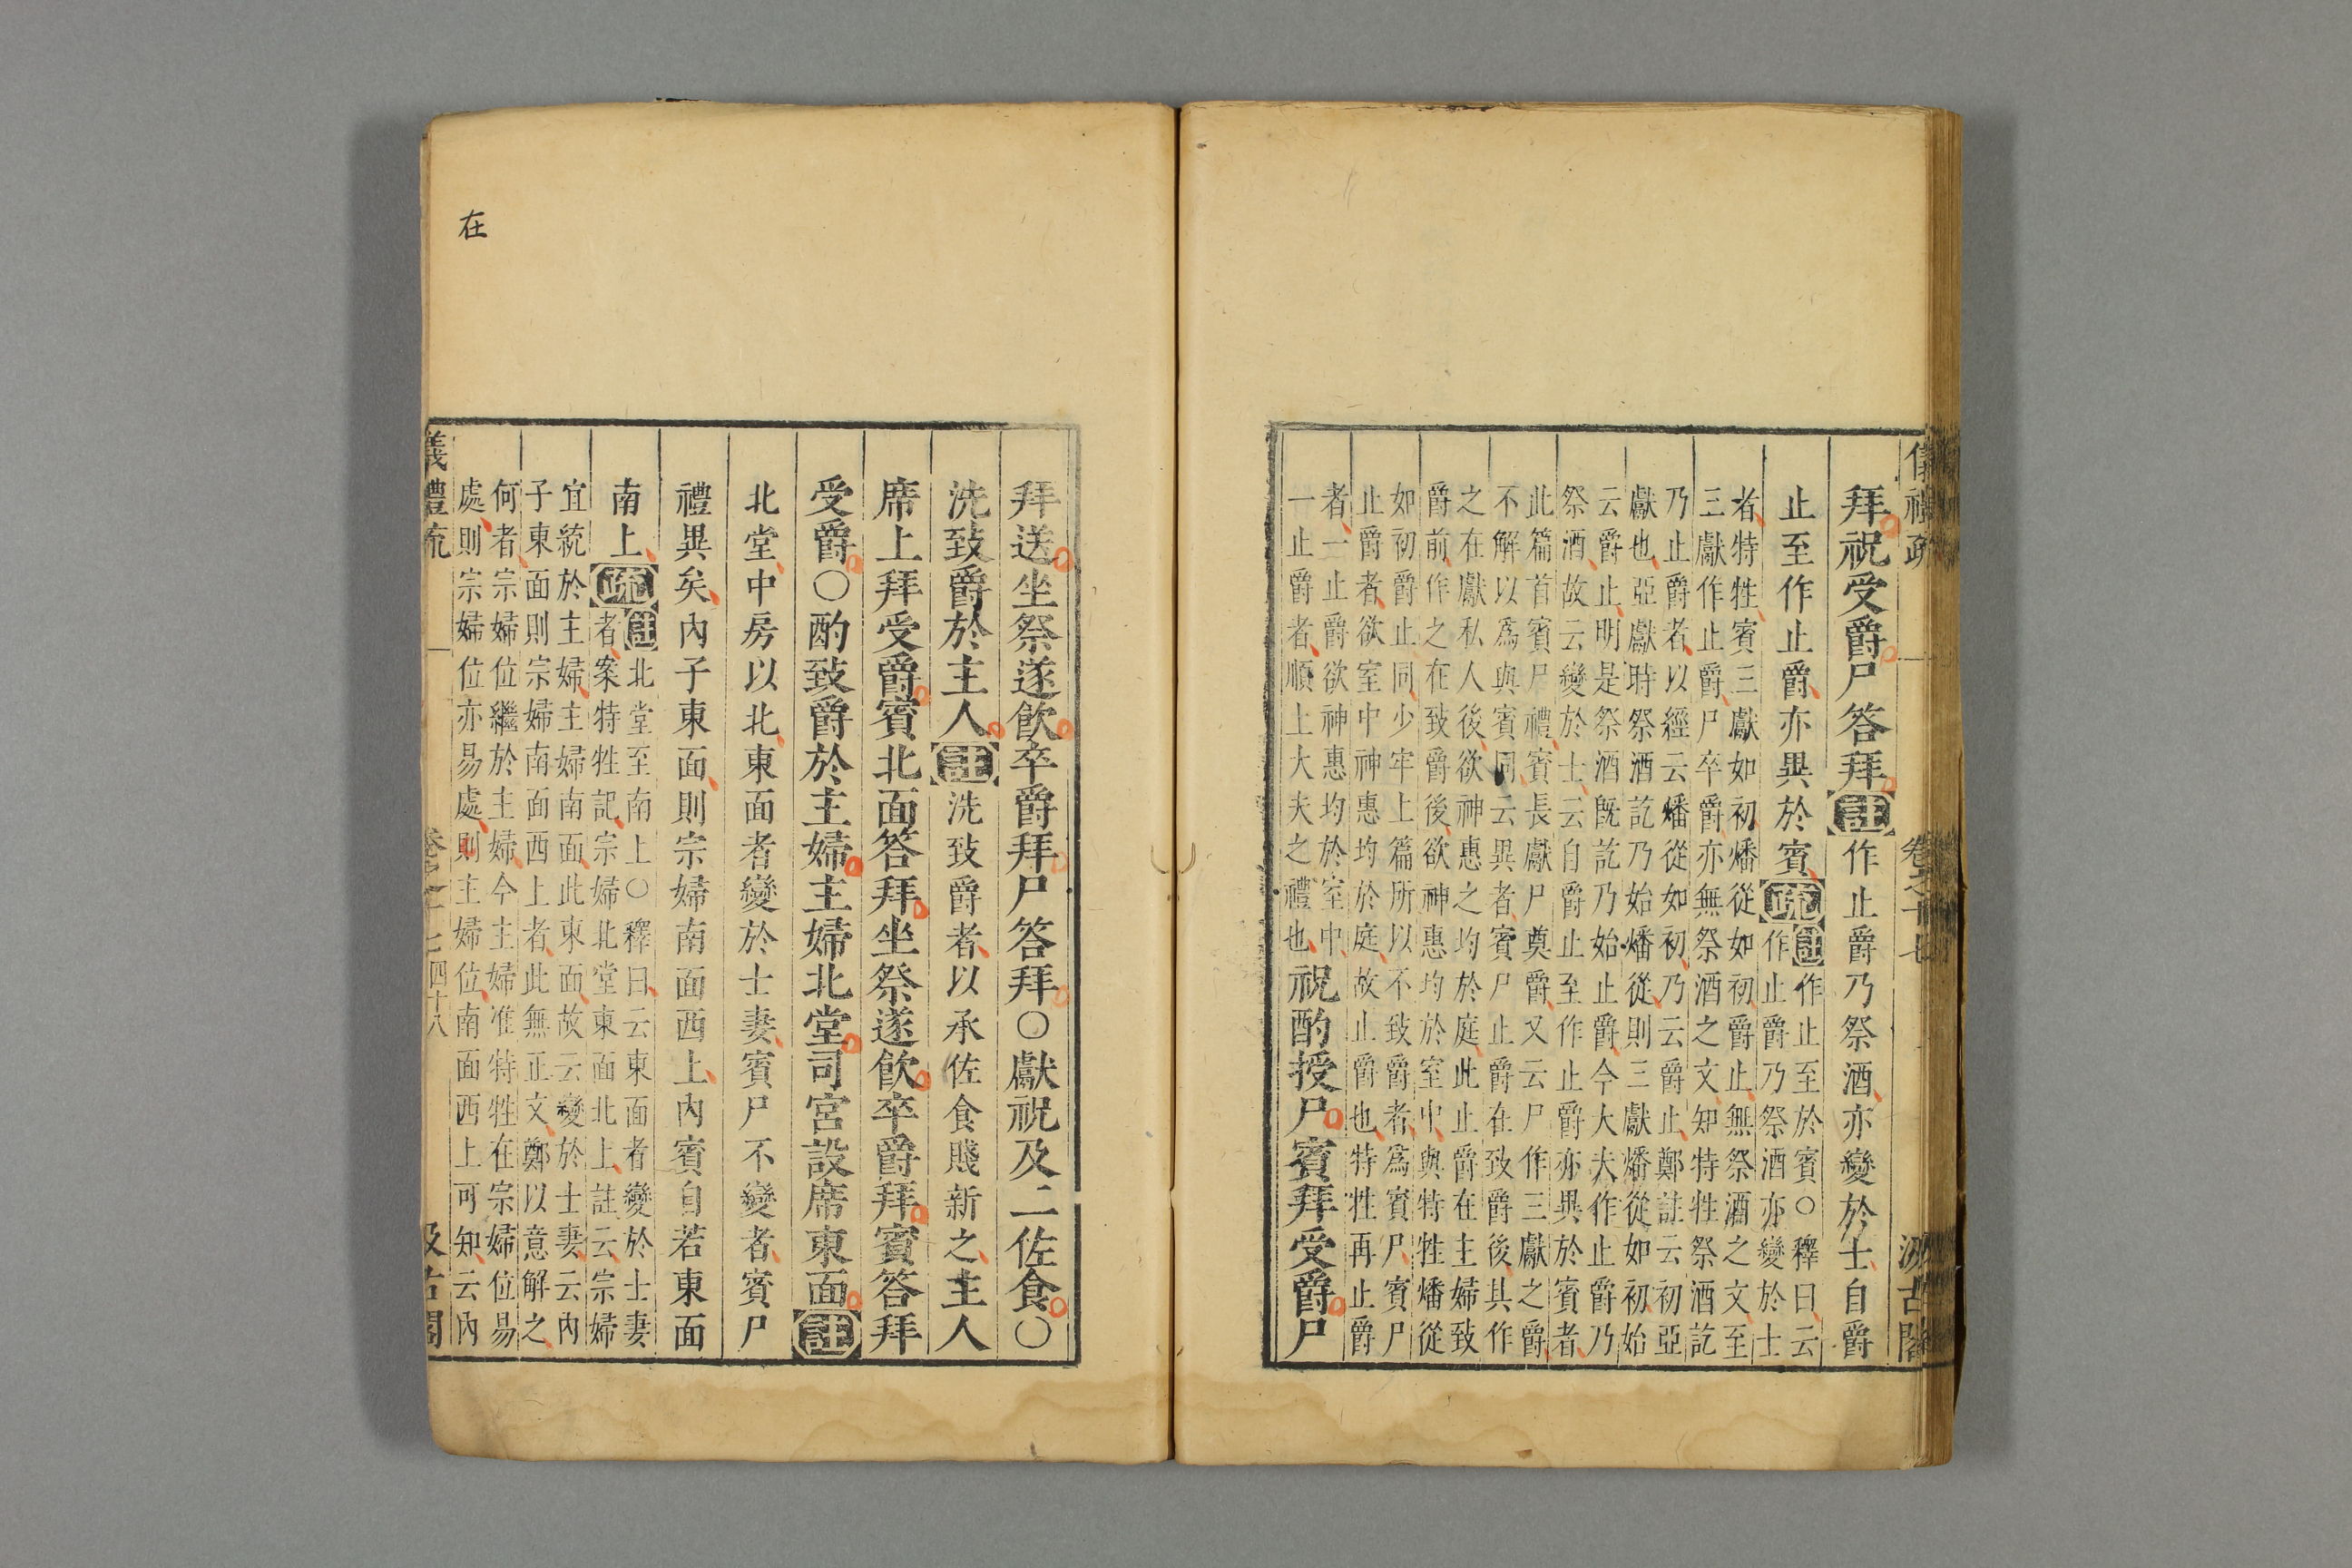 拜祝受爵尸答拜註作止爵乃祭酒亦變於士自爵
止至作止爵亦異於賓疏註作止至於賓○釋曰云
作止爵乃祭酒亦變於士
者特牲賓三獻如初燔從如初爵止無祭酒之文至
三獻作止爵尸卒爵亦無祭酒之文知特牲祭酒訖
乃止爵者以經云燔從如初乃云爵止鄭註云初亞
獻也亞獻時祭酒訖乃始燔從則三獻燔從如初始
云爵止明是祭酒旣訖乃始止爵今大夫作止爵乃
祭酒故云變於士云自爵止至作止爵亦異於賓者
此篇首賓尸禮賓長獻尸奠爵又云尸作三獻之爵
不解以爲與賓同云異者賓尸止爵在致爵後其作
之在獻私人後欲神惠之均於庭此止爵在主婦致
爵前作之在致爵後欲神惠均於室中與特牲燔從
如初爵止同少牢上篇所以不致爵者爲賓尸賓尸
止爵者欲室中神惠均於庭故止爵也特牲再止爵
者一止爵欲神惠均於室中
一止爵者順上大夫之禮也祝酌授尸賓拜受爵尸
儀禮疏 卷之十七 汲古閣
拜送坐祭遂飮卒爵拜尸答拜○獻祝及二佐食○
洗致爵於主人註洗致爵者以承佐食賤新之主人
席上拜受爵賓北面答拜坐祭遂飮卒爵拜賓答拜
受爵○酌致爵於主婦主婦北堂司宮設席東面註
北堂中房以北東面者變於士妻賓尸不變者賓尸
禮異矣內子東面則宗婦南面西上內賓自若東面
南上疏註北堂至南上○釋曰云東面者變於士妻
者案特牲記宗婦北堂東面北上註云宗婦
宜統於主婦主婦南面此東面故云變於士妻云內
子東面則宗婦南面西上者此無正文鄭以意解之
何者宗婦位繼於主婦今主婦准特牲在宗婦位易
處則宗婦位亦易處則主婦位南面西上可知云內
儀禮疏 卷之十七 四十八 汲古閣
在